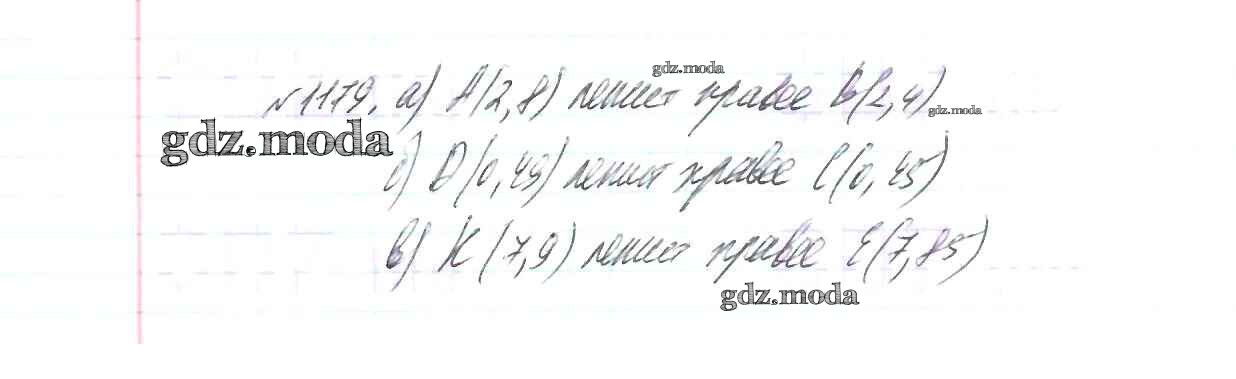 gdz.moda
№1179. а) A(2,8) лежит правее B(2,4)
gdz.moda
gdz.moda
б) D(0,49) лежит правее C(0,45)
в) K(7,9) лежит правее E(7,85)
gdz.moda